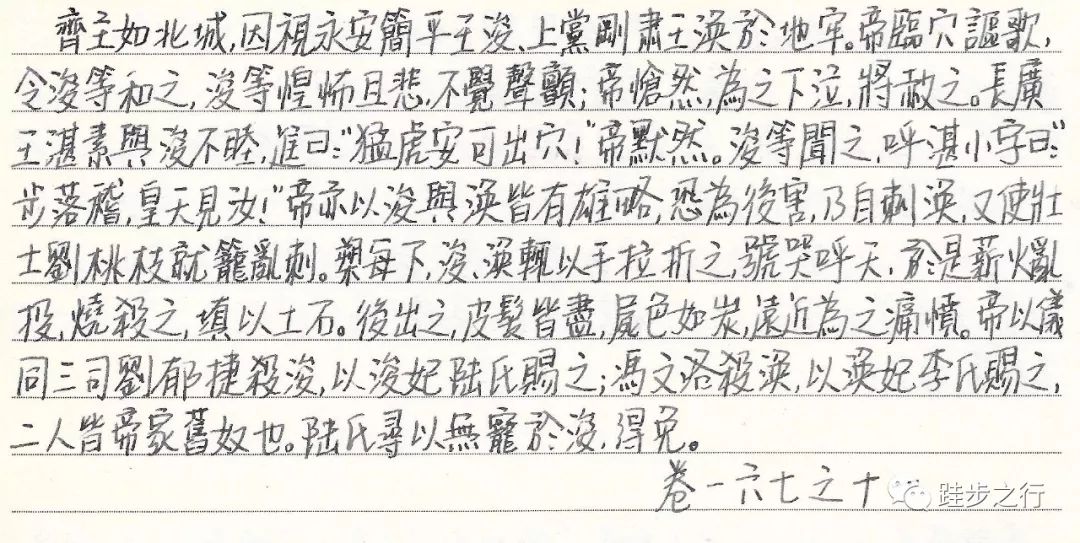 齊主如北城,因視永安簡平王浚、上黨剛肅王渙於地牢。帝臨穴謳歌,
令浚等和之,浚等惶怖且悲,不覺聲顫;帝愴然,為之下泣,將赦之。長廣
王湛素與浚不睦,進曰:“猛虎安可出穴!”帝默然。浚等聞之,呼湛小字曰:“
步落稽,皇天見汝!”帝亦以浚與渙皆有雄略,恐為後害,乃自刺渙,又使壯
士劉桃枝就籠亂刺。槊每下,浚、渙輒以手拉折之,號哭呼天,於是薪火亂
投,燒殺之,填以土石。後出之,皮髮皆盡,屍色如炭,遠近為之痛憤。帝以儀
同三司劉郁捷殺浚,以浚妃陸氏賜之;馮文洛殺渙,以渙妃李氏賜之,
二人皆帝家舊奴也。陸氏尋以無寵於浚,得免。
卷一六七之十
跬步之行